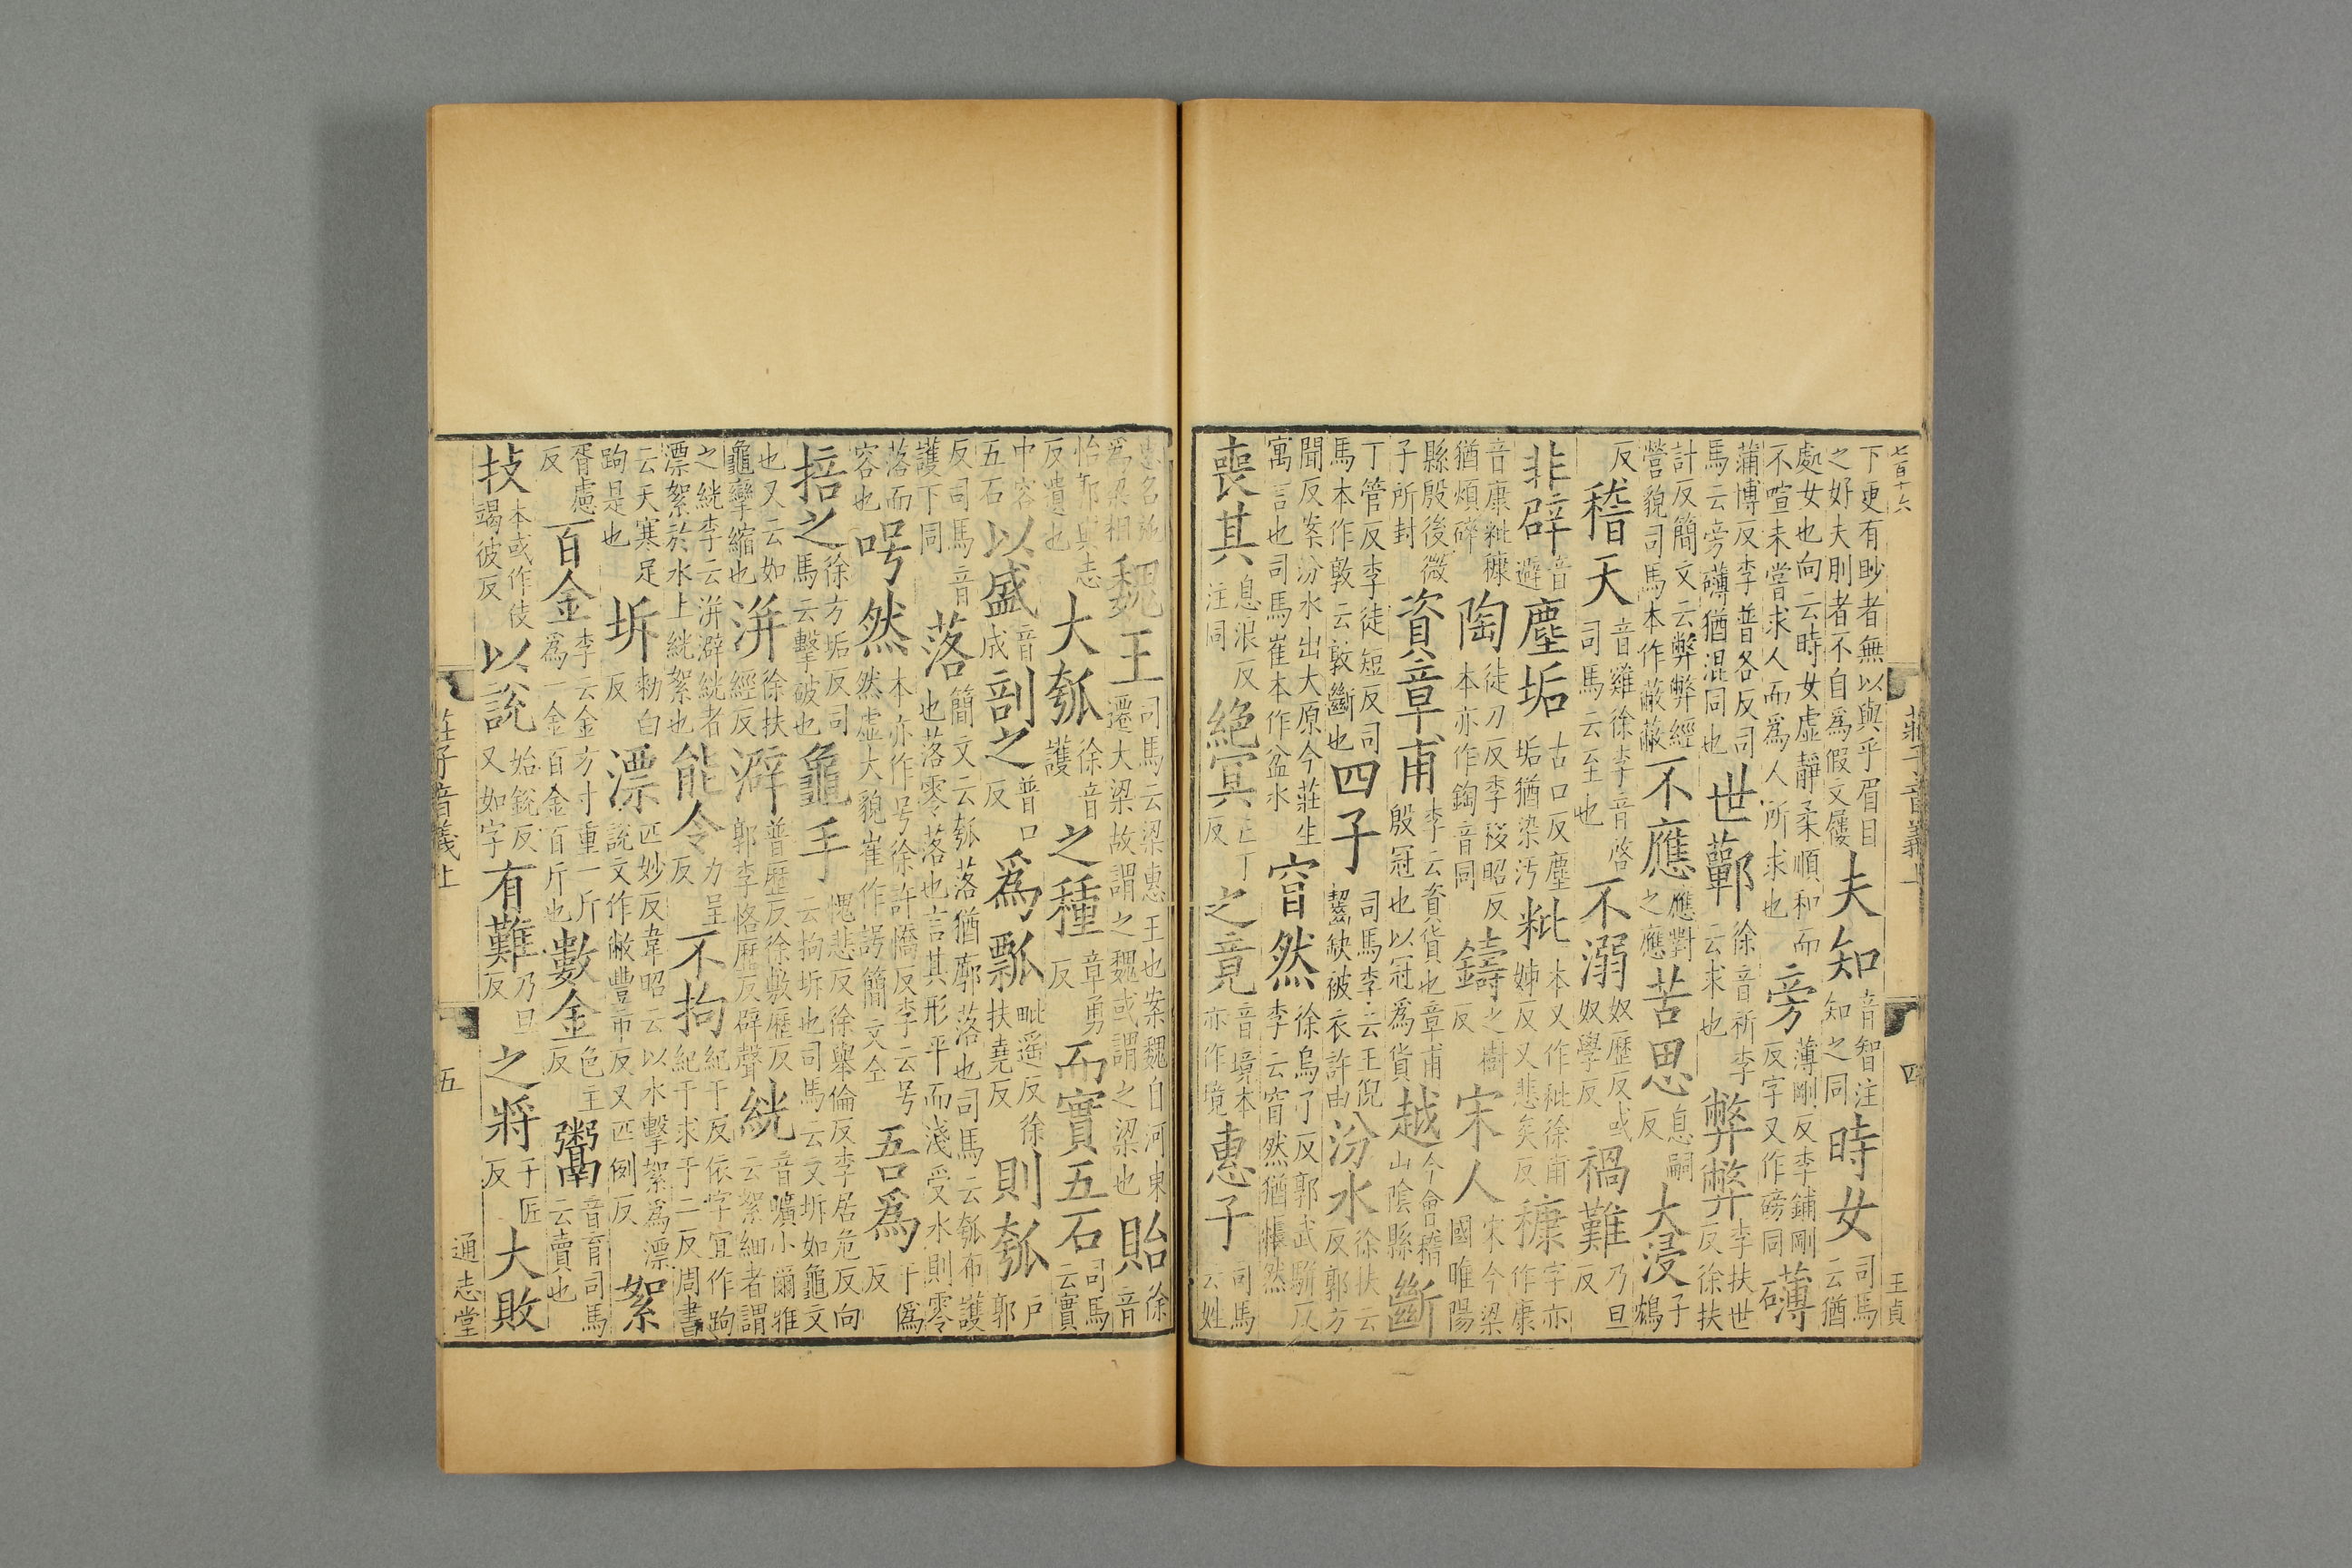 七百十六 莊子音義上 四 王貞
下更有眇者無以與乎眉目之好夫刖者不自爲假文屨夫知音智注知之同時女司馬云猶
處女也向云時女虛靜柔順和而不喧未嘗求人而爲人所求也旁薄剛反李鋪剛反字又作磅同礴
蒲博反李普各反司馬云旁礴猶混同也世蘄徐音祈李云求也弊弊李扶世反徐扶
計反簡文云弊弊經營貌司馬本作蔽蔽不應應對之應苦思息嗣反大浸子鴆
反稽天音雞徐李音啓司馬云至也不溺奴歷反或奴學反禍難乃旦反
非辟音避塵垢古口反塵垢猶染污粃本又作秕徐甫姊反又悲矣反穅字亦作康
音康粃穅猶煩碎陶徒刀反李移昭反本亦作鋾音同鑄之樹反宋人宋今梁國睢陽
縣殷後微子所封資章甫李云資貨也章甫殷冠也以冠爲貨越今會稽山陰縣斷
丁管反李徒短反司馬本作敦云敦斷也四子司馬李云王倪齧缺被衣許由汾水徐扶云反郭方
聞反案汾水出大原今莊生寓言也司馬崔本作盆水窅然徐烏了反郭武駢反李云窅然猶悵然
喪其息浪反注同絕冥亡丁反之竟音境本亦作境惠子司馬云姓
惠名施爲梁相魏王司馬云梁惠王也案魏自河東遷大梁故謂之魏或謂之梁也貽徐音
怡郭與志反遺也大瓠徐音護之種章勇反而實五石司馬云實
中容五石以盛音成剖之普口反爲瓢毗遥反徐扶堯反則瓠戶郭
反司馬音護下同落簡文云瓠落猶廓落也司馬云瓠布護也落零落也言其形平而淺受水則零
落而容也呺然本亦作号徐許憍反李云号然虛大貌崔作諤簡文仝吾爲于僞反
掊之徐方垢反司馬云擊破也龜手愧悲反徐舉倫反李居危反向云拘坼也司馬云文坼如龜文
也又云如龜攣縮也洴徐扶經反澼普歷反徐敷歷反郭李恪歷反辟聲絖音曠小爾雅云絮細者謂
之絖李云洴澼絖者漂絮於水上絖絮也能令力呈反不拘紀于反依字宜作跔紀于求于二反周書
云天寒足跔是也坼勑白反漂匹妙反韋昭云以水擊絮爲漂說文作敝豐市反又匹例反絮
胥慮反百金李云金方寸重一斤爲一金百金百斤也數金色主反鬻音育司馬云賣也
技本或作伎竭彼反以說始銳反又如字有難乃旦反之將子匠反大敗
莊子音義上 五 通志堂